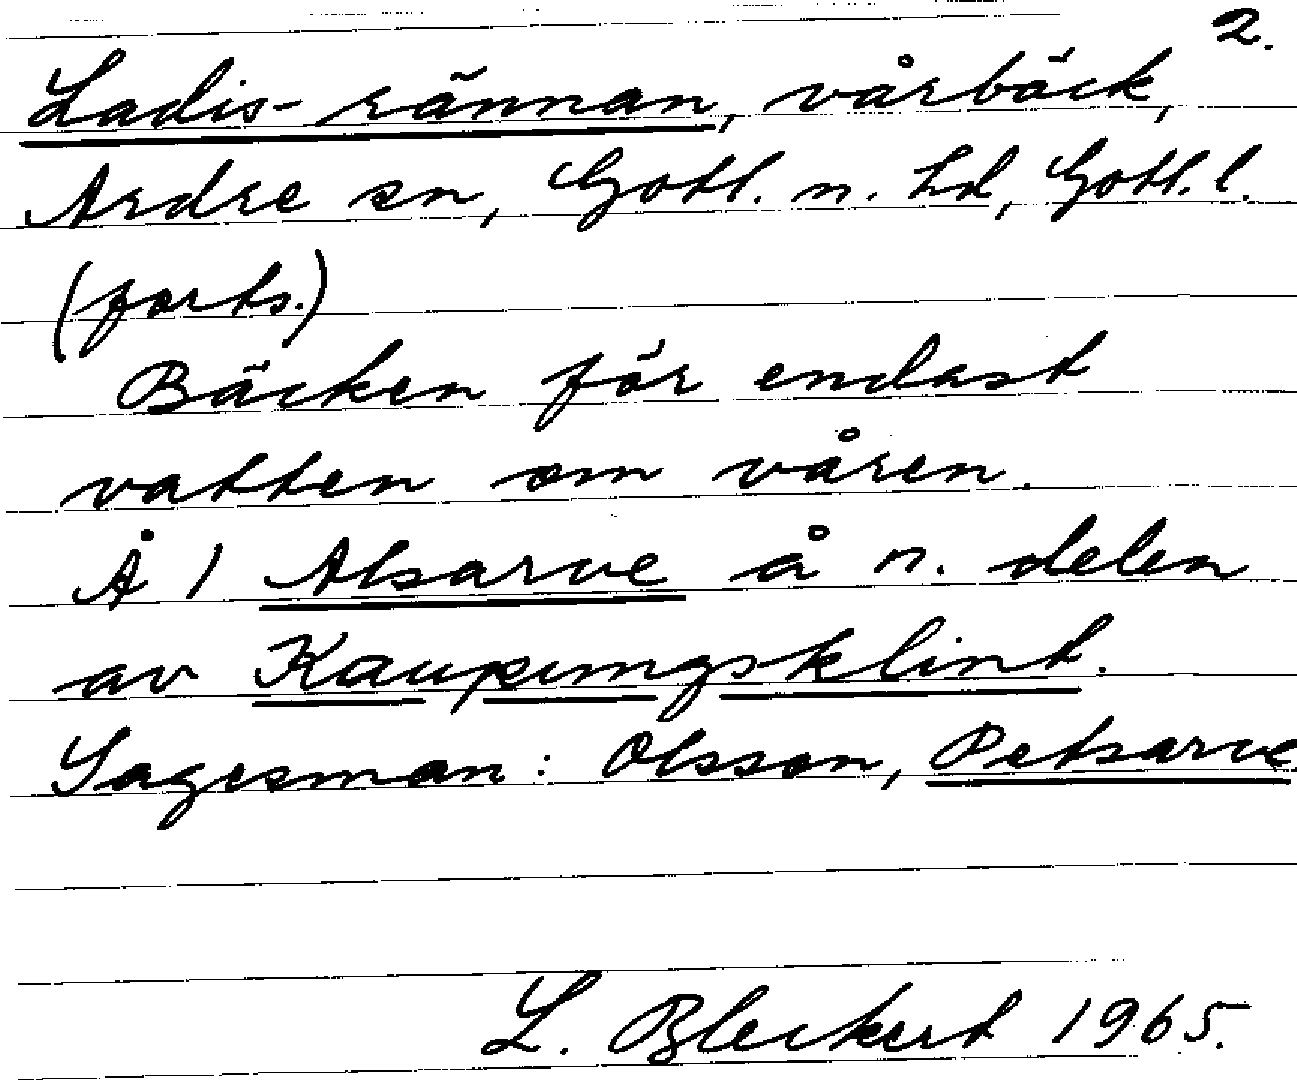 2.
Ladis-rännan, vårbäck,
Ardre sn, Gotl. n. hd, Gotl. l.
(forts.)
Bäcken för endast
vatten om våren.
Å 1 Alsarve å n. delen
av Kaupungsklint.
Sagesman: Olsson, Petsarve
L. Bleckert 1965.